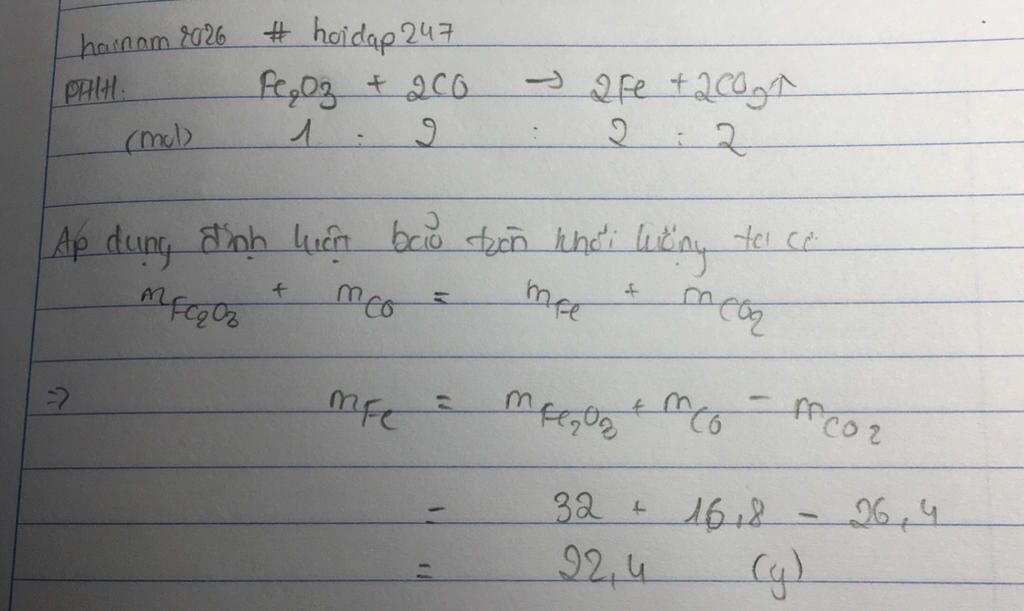 hainam2026 # hoidap247
PTHH: Fe₂O₃ + 2CO → 2Fe + 2CO₂↑
(mol) 1 : 2 : 2 : 2
Áp dụng định luật bảo toàn khối lượng ta có
m Fe₂O₃ + m CO = m Fe + m CO₂
⇒ m Fe = m Fe₂O₃ + m CO - m CO₂
= 32 + 16,8 - 26,4
= 22,4 (g)